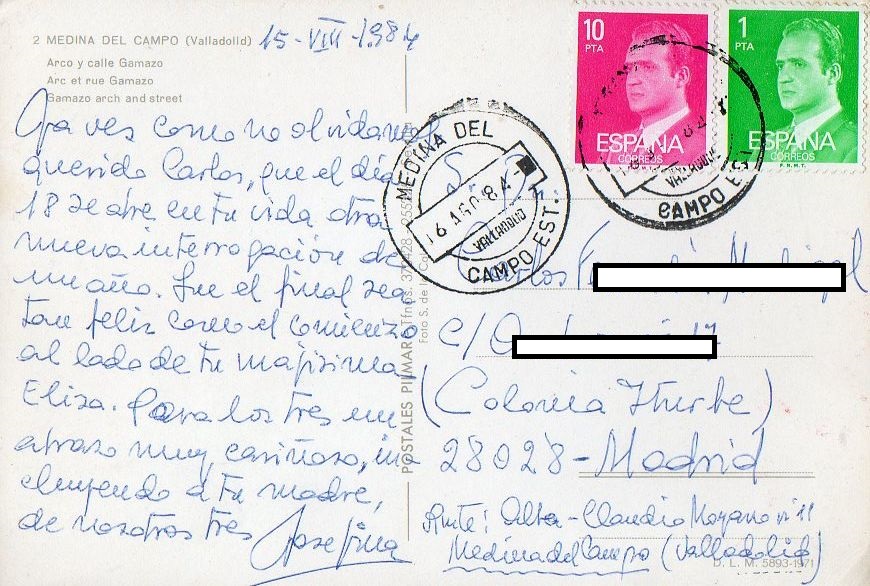 2 MEDINA DEL CAMPO (Valladolid)
Arco y calle Gamazo
Arc et rue Gamazo
Gamazo arch and street
15-VIII-1984
Ya ves como no olvidamos
querido Carlos, que el día
18 se abre en tu vida otra
nueva interrogación de
un año. Que el final sea
tan feliz como el comienzo
al lado de tu majísima
Elisa. Para los tres un
abrazo muy cariñoso, in
cluyendo a tu madre,
de nosotros tres Josefina
POSTALES PILMAR Tfnos.
Foto S. de la
MEDINA DEL
16 AGO 84
VALLADOLID
CAMPO EST.
10
PTA
ESPAÑA
CORREOS
1
PTA
ESPAÑA
CORREOS
F.N.M.T.
84
VALLADOLID
CAMPO EST.
S. D.
Carlos
C/ 17
(Colonia Iturbe)
28028-Madrid
Rmte: Alba-Claudio Moyano nº 11
Medina del Campo (Valladolid)
D. L. M. 5893-1971